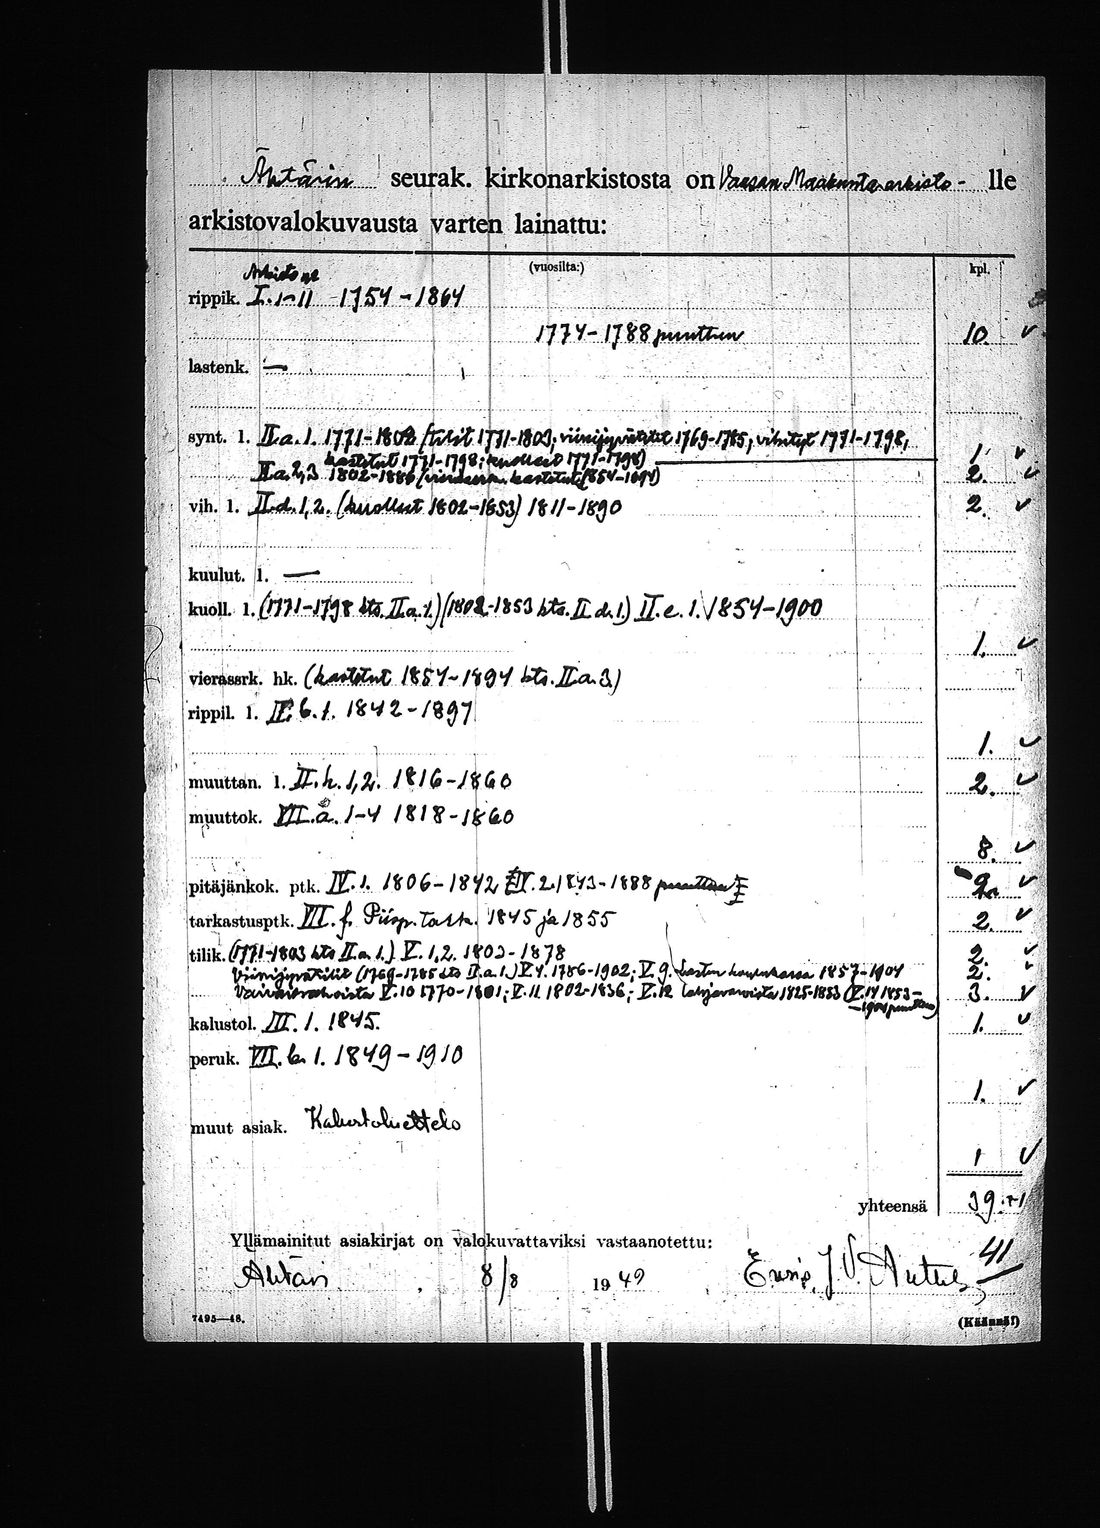 Ähtärin seurak. kirkonarkistosta on Vaasan Maakunta-arkisto- lle
arkistovalokuvausta varten lainattu:
(vuosilta:) kpl.
Arkisto nr
rippik. I. 1-11 1754-1864
1774-1788 puuttuu 10 ✓
lastenk. —
synt. l. II.a. 1. 1771-1802 (tilit 1771-1803; viinijyvätilit 1769-1785, vihityt 1771-1798,
kastetut 1771-1798; kuolleet 1771-1798) 1. ✓
II.a. 2,3 1802-1886 (vierasseur. kastetut 1854-1894) 2. ✓
vih. l. II.d. 1,2. (kuolleet 1802-1853) 1811-1890 2. ✓
kuulut. l. —
kuoll. l. (1771-1798 kts. II.a.1.) (1802-1853 kts. II d. 1.) II. e. 1. 1854-1900
1. ✓
vierassrk. hk. (kastetut 1854-1894 kts. II a. 3)
rippil. l. II. b. 1. 1842-1897
1. ✓
muuttan. l. II. h. 1,2. 1816-1860 2. ✓
muuttok. VII. a. 1-4 1818-1860
8. ✓
pitäjänkok. ptk. IV. 1. 1806-1842 IV. 2. 1843-1888 puuttuu 2. ✓
tarkastusptk. VII. f. Piisp. tark. 1845 ja 1855 2. ✓
tilik. (1771-1803 kts II a. 1.) V. 1,2. 1803-1878 2. ✓
Viinijyvätilit (1769-1785 kts II.a.1.) V.4. 1786-1902; V. 9. Lasten kouluk­assa 1857-1904 2. ✓
Vaivaisrahoista V. 10 1770-1801; V. 11. 1802-1836; V. 12 lahjavaroista 1825-1853 (V. 14 1853- 3. ✓
-1904 puuttuu)
kalustol. III. 1. 1845. 1. ✓
peruk. VII. b. 1. 1849-1910
1. ✓
muut asiak. Kalustoluettelo
1 ✓
yhteensä 39 +1
Yllämainitut asiakirjat on valokuvattaviksi vastaanotettu: 41
Ähtäri, 8/8 1949 J. V.
7495—48. (Käännä!)